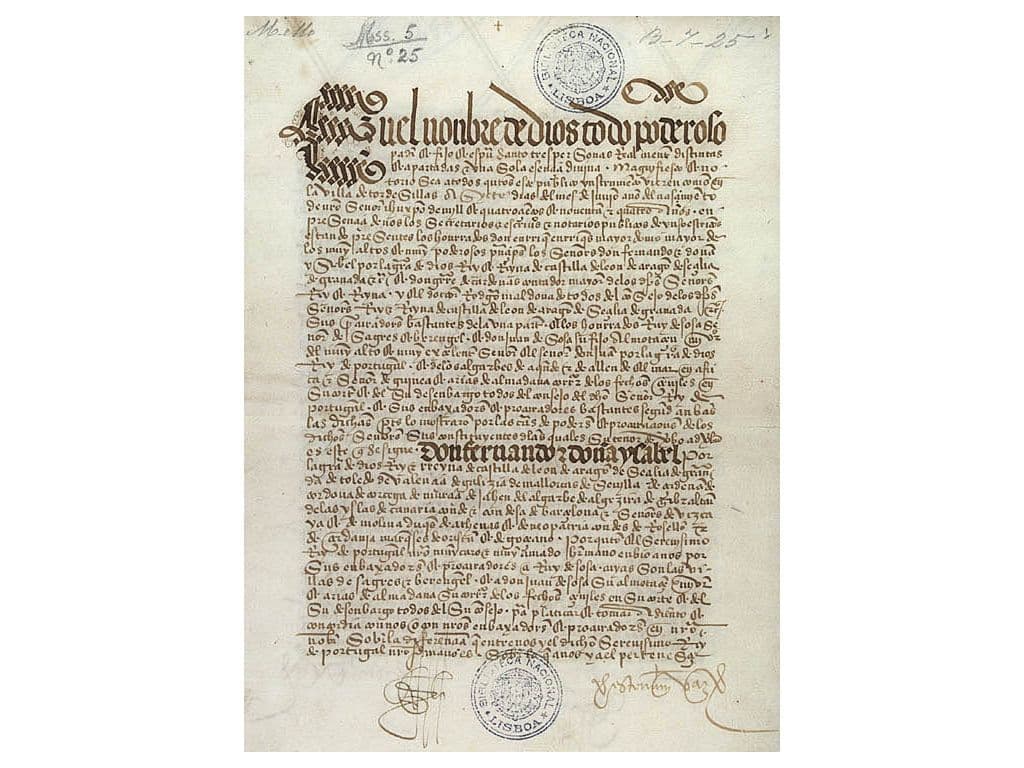 Mss. 5
Nº 25
B-7-25
BIBLIOTECA NACIONAL
LISBOA
En el nonbre de dios todo poderoso
padre & fijo & espu santo tres personas realmente distintas
& apartadas & una sola esencia divina. Magnifiesto & no
torio sea a todos quantos este publico ynstrumento vieren como en
la villa de tordesillas a siete dias del mes de junio año del nasçimiento
de nro señor ihu xpo de mill & quatroçientos & noventa & quatro años. en
presençia de nos los secretarios & escrivanos & notarios publicos de yuso escritos
estando presentes los honrrados don enrrique enrriques mayordomo mayor de
los muy altos & muy poderosos prinçipes los señores don fernando & doña
ysabel por la graçia de dios Rey & Reyna de castilla de leon de aragon de seçilia
de granada & & don gutierre de cardenas contador mayor de los dichos señores
Rey & Reyna. y el doctor Rodrigo maldonado todos del consejo de los dichos
señores Rey & Reyna de castilla de leon de aragon de seçilia de granada
sus procuradores bastantes de la una parte. & los honrrados Ruy de sosa se
ñor de sagres & berengel. & don juan de sosa su fijo almotaçen mayor
del muy alto & muy exçelente señor el señor don juan por la graçia de dios
Rey de portugal. & de los algarbes de aquende & de allende el mar en afri
ca & señor de guinea & arias de almadana corregidor de los fechos çeviles en
su corte & del su desenbargo todos del consejo del dicho señor Rey de
portugal. & sus enbaxadores & procuradores bastantes segund anbas
las dichas partes lo mostraron por las cartas de poderes & procuraçiones de los
dichos señores sus constituyentes de las quales su tenor de
es este que se sigue. don fernando & doña ysabel por
la graçia de dios Rey & Reyna de castilla de leon de aragon de seçilia de grana
da de toledo de valençia de galizia de mallorcas de sevilla de çerdeña de
cordova de corçega de murçia de jahen del algarbe de algezira de gibraltar
de las yslas de canaria conde & condesa de barçelona & señores de vizca
ya & de molina duques de athenas & de neopatria condes de Rosellon
de çerdania marqueses de oristan & de goçiano. por quanto el serenisimo
Rey de portugal nro muy caro & muy amado hermano enbio a nos por
sus enbaxadores & procuradores a Ruy de sosa cuyas son las vi
llas de sagres & berengel. & a don juan de sosa su almotaçen mayor
& arias de almadana su corregidor de los fechos çeviles en su corte & del
su desenbargo todos del su consejo. para platicar & tomar asiento &
concordia con nos o con nros enbaxadores & procuradores en nro
nonbre sobre la diferençia que entre nos y el dicho serenisimo Rey
de portugal nro hermano es. sobre lo que a nos y a el perteneçe
BIBLIOTECA NACIONAL
LISBOA